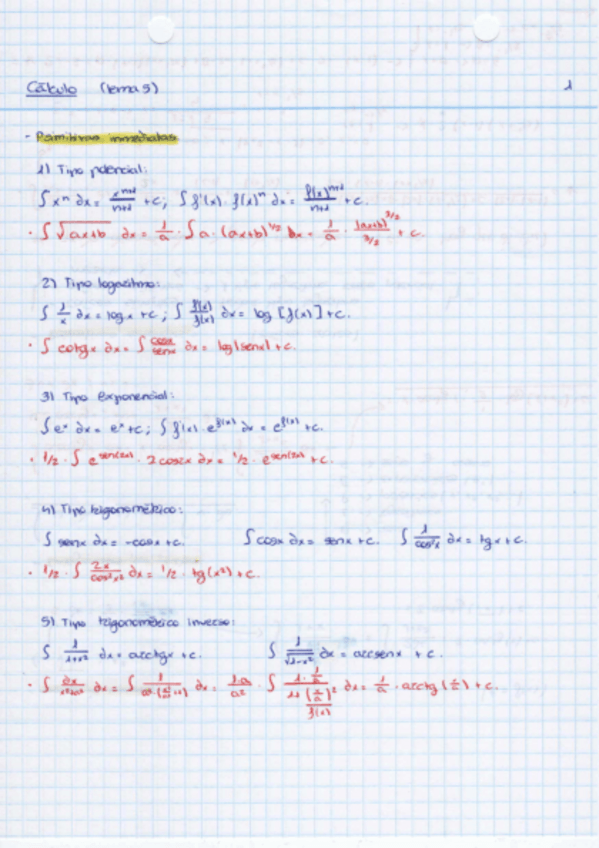 Cálculo (tema 5) 1
- Primitivas inmediatas
1) Tipo potencial:
∫ xⁿ dx = xⁿ⁺¹/n+1 + c; ∫ f'(x) · f(x)ⁿ dx = f(x)ⁿ⁺¹/n+1 + c.
· ∫ √ax+b dx = 1/a · ∫ a · (ax+b)^1/2 dx = 1/a · (ax+b)^3/2 / 3/2 + c.
2) Tipo logaritmo:
∫ 1/x dx = log x + c; ∫ f'(x)/f(x) dx = log [f(x)] + c.
· ∫ cotgx dx = ∫ cosx/senx dx = log|senx| + c.
3) Tipo exponencial:
∫ eˣ dx = eˣ + c; ∫ f'(x) · e^f(x) dx = e^f(x) + c.
· 1/2 · ∫ e^sen(2x) · 2cos2x dx = 1/2 · e^sen(2x) + c.
4) Tipo trigonométrico:
∫ senx dx = -cosx + c. ∫ cosx dx = senx + c. ∫ 1/cos²x dx = tgx + c.
· 1/2 · ∫ 2x/cos²x² dx = 1/2 · tg(x²) + c.
5) Tipo trigonométrico inverso:
∫ 1/1+x² dx = arctgx + c. ∫ 1/√1-x² dx = arcsenx + c.
· ∫ dx/x²+a² dx = ∫ 1/a²·(x²/a²+1) dx = 1·a/a² · ∫ 1·1/a / 1+(x/a)² dx = 1/a · arctg (x/a) + c.
f(x)